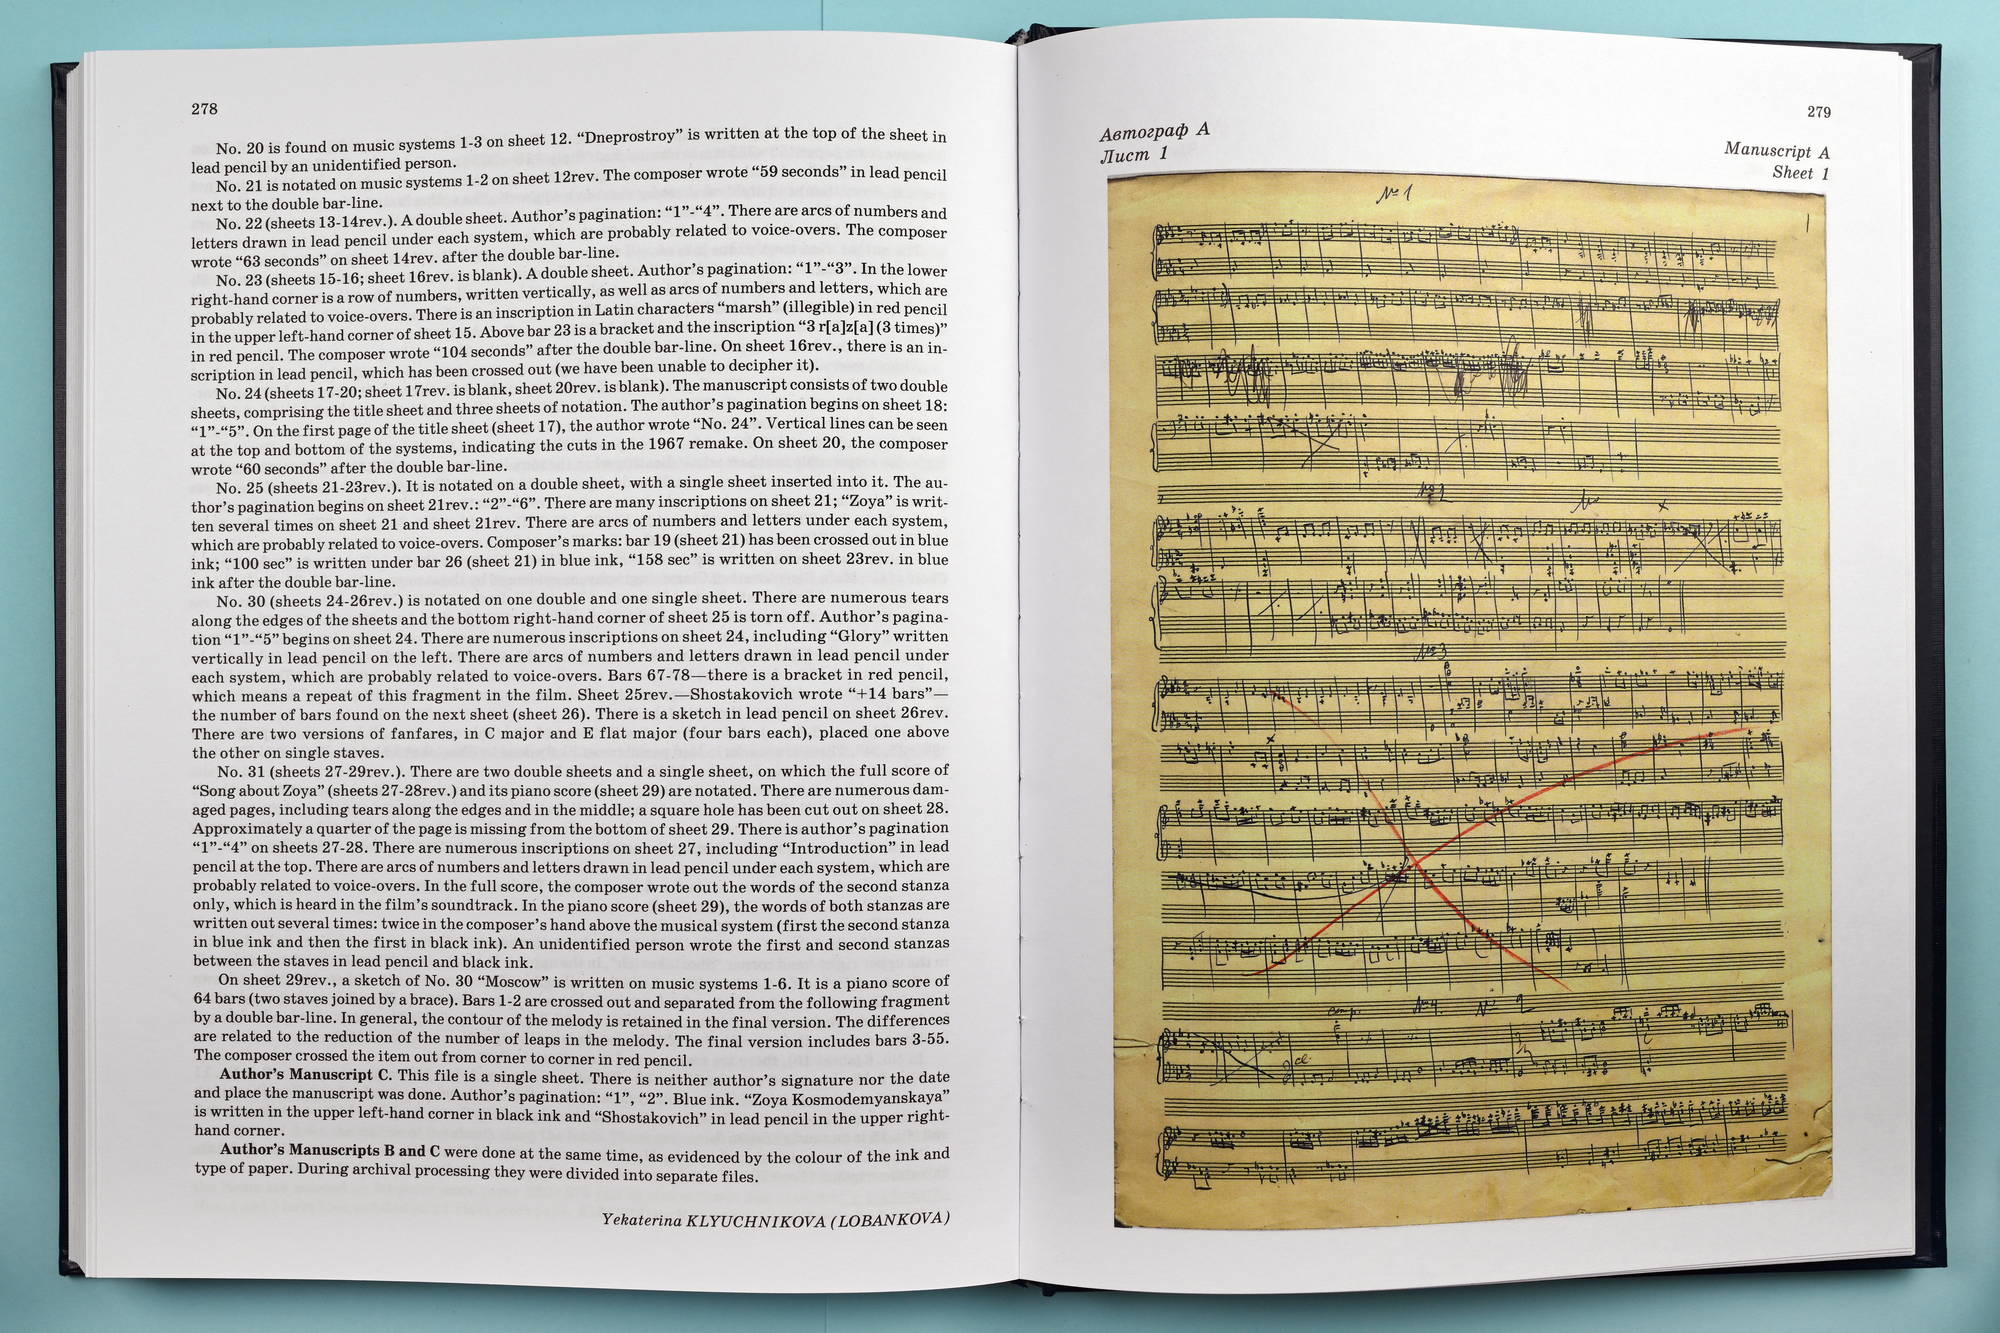 278
No. 20 is found on music systems 1-3 on sheet 12. “Dneprostroy” is written at the top of the sheet in
lead pencil by an unidentified person.
No. 21 is notated on music systems 1-2 on sheet 12rev. The composer wrote “59 seconds” in lead pencil
next to the double bar-line.
No. 22 (sheets 13-14rev.). A double sheet. Author’s pagination: “1”-“4”. There are arcs of numbers and
letters drawn in lead pencil under each system, which are probably related to voice-overs. The composer
wrote “63 seconds” on sheet 14rev. after the double bar-line.
No. 23 (sheets 15-16; sheet 16rev. is blank). A double sheet. Author’s pagination: “1”-“3”. In the lower
right-hand corner is a row of numbers, written vertically, as well as arcs of numbers and letters, which are
probably related to voice-overs. There is an inscription in Latin characters “marsh” (illegible) in red pencil
in the upper left-hand corner of sheet 15. Above bar 23 is a bracket and the inscription “3 r[a]z[a] (3 times)”
in red pencil. The composer wrote “104 seconds” after the double bar-line. On sheet 16rev., there is an in-
scription in lead pencil, which has been crossed out (we have been unable to decipher it).
No. 24 (sheets 17-20; sheet 17rev. is blank, sheet 20rev. is blank). The manuscript consists of two double
sheets, comprising the title sheet and three sheets of notation. The author’s pagination begins on sheet 18:
“1”-“5”. On the first page of the title sheet (sheet 17), the author wrote “No. 24”. Vertical lines can be seen
at the top and bottom of the systems, indicating the cuts in the 1967 remake. On sheet 20, the composer
wrote “60 seconds” after the double bar-line.
No. 25 (sheets 21-23rev.). It is notated on a double sheet, with a single sheet inserted into it. The au-
thor’s pagination begins on sheet 21rev.: “2”-“6”. There are many inscriptions on sheet 21; “Zoya” is writ-
ten several times on sheet 21 and sheet 21rev. There are arcs of numbers and letters under each system,
which are probably related to voice-overs. Composer’s marks: bar 19 (sheet 21) has been crossed out in blue
ink; “100 sec” is written under bar 26 (sheet 21) in blue ink, “158 sec” is written on sheet 23rev. in blue
ink after the double bar-line.
No. 30 (sheets 24-26rev.) is notated on one double and one single sheet. There are numerous tears
along the edges of the sheets and the bottom right-hand corner of sheet 25 is torn off. Author’s pagina-
tion “1”-“5” begins on sheet 24. There are numerous inscriptions on sheet 24, including “Glory” written
vertically in lead pencil on the left. There are arcs of numbers and letters drawn in lead pencil under
each system, which are probably related to voice-overs. Bars 67-78—there is a bracket in red pencil,
which means a repeat of this fragment in the film. Sheet 25rev.—Shostakovich wrote “+14 bars”—
the number of bars found on the next sheet (sheet 26). There is a sketch in lead pencil on sheet 26rev.
There are two versions of fanfares, in C major and E flat major (four bars each), placed one above
the other on single staves.
No. 31 (sheets 27-29rev.). There are two double sheets and a single sheet, on which the full score of
“Song about Zoya” (sheets 27-28rev.) and its piano score (sheet 29) are notated. There are numerous dam-
aged pages, including tears along the edges and in the middle; a square hole has been cut out on sheet 28.
Approximately a quarter of the page is missing from the bottom of sheet 29. There is author’s pagination
“1”-“4” on sheets 27-28. There are numerous inscriptions on sheet 27, including “Introduction” in lead
pencil at the top. There are arcs of numbers and letters drawn in lead pencil under each system, which are
probably related to voice-overs. In the full score, the composer wrote out the words of the second stanza
only, which is heard in the film’s soundtrack. In the piano score (sheet 29), the words of both stanzas are
written out several times: twice in the composer’s hand above the musical system (first the second stanza
in blue ink and then the first in black ink). An unidentified person wrote the first and second stanzas
between the staves in lead pencil and black ink.
On sheet 29rev., a sketch of No. 30 “Moscow” is written on music systems 1-6. It is a piano score of
64 bars (two staves joined by a brace). Bars 1-2 are crossed out and separated from the following fragment
by a double bar-line. In general, the contour of the melody is retained in the final version. The differences
are related to the reduction of the number of leaps in the melody. The final version includes bars 3-55.
The composer crossed the item out from corner to corner in red pencil.
Author’s Manuscript C. This file is a single sheet. There is neither author’s signature nor the date
and place the manuscript was done. Author’s pagination: “1”, “2”. Blue ink. “Zoya Kosmodemyanskaya”
is written in the upper left-hand corner in black ink and “Shostakovich” in lead pencil in the upper right-
hand corner.
Author’s Manuscripts B and C were done at the same time, as evidenced by the colour of the ink and
type of paper. During archival processing they were divided into separate files.
Yekaterina KLYUCHNIKOVA (LOBANKOVA)
279
Автограф А
Лист 1
Manuscript A
Sheet 1
№ 1
1
№ 2
№ 3
№ 4. № 2